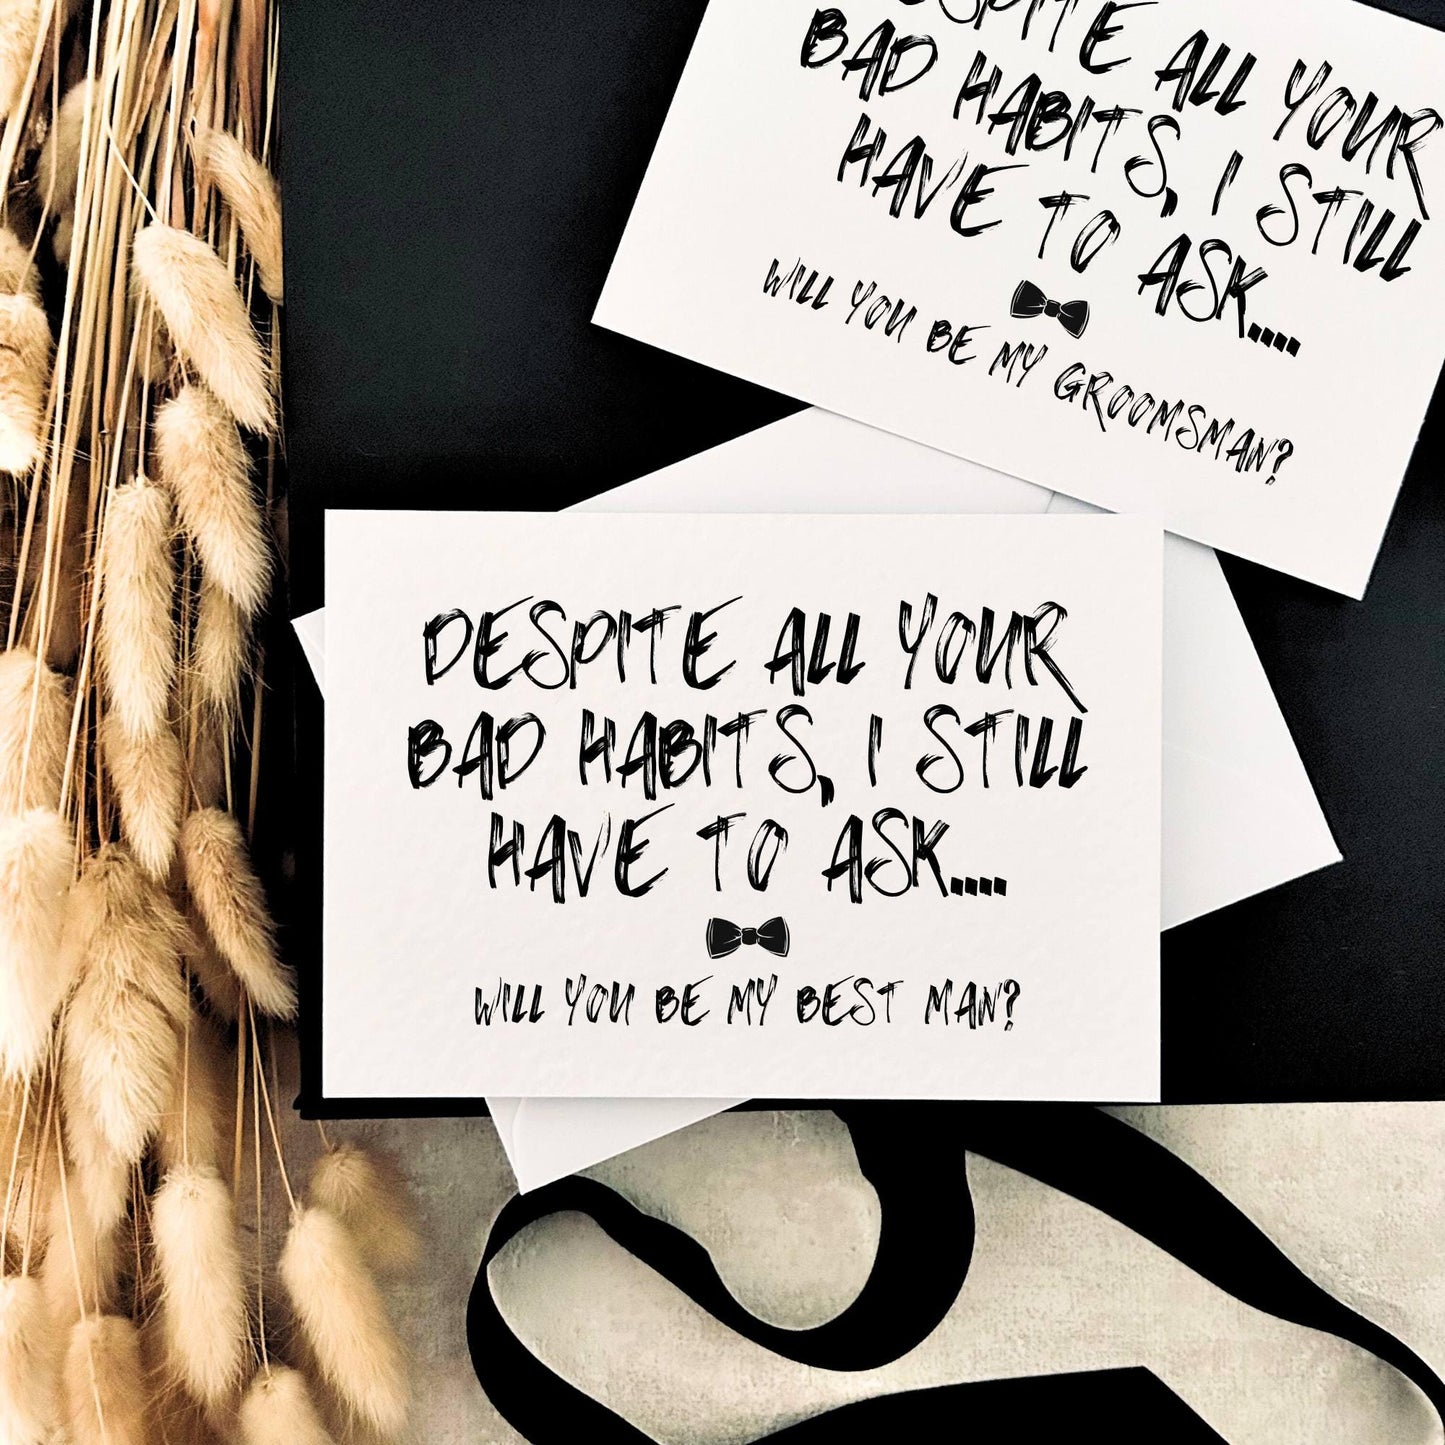 DESPITE ALL YOUR
BAD HABITS, I STILL
HAVE TO ASK....
WILL YOU BE MY GROOMSMAN?
DESPITE ALL YOUR
BAD HABITS, I STILL
HAVE TO ASK....
WILL YOU BE MY BEST MAN?